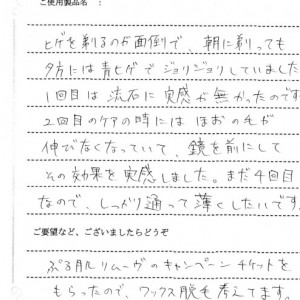 ご使用製品名　：
ヒゲを剃るのが面倒で、朝に剃っても
夕方には青ヒゲでジョリジョリしていました
1回目は流石に実感が無かったのです
2回目のケアの時にはほおの毛が
伸びなくなっていて、鏡を前にして
その効果を実感しました。まだ4回目
なので、しっかり通って薄くしたいです。
ご要望など、ございましたらどうぞ
ぷる肌リムーヴのキャンペーンチケットを
もらったので、ワックス脱毛も考えてます。